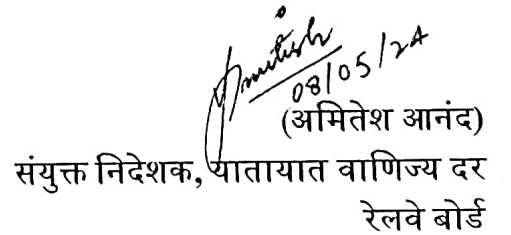 Amitesh
08/05/24
(अमितेश आनंद)
संयुक्त निदेशक, यातायात वाणिज्य दर
रेलवे बोर्ड